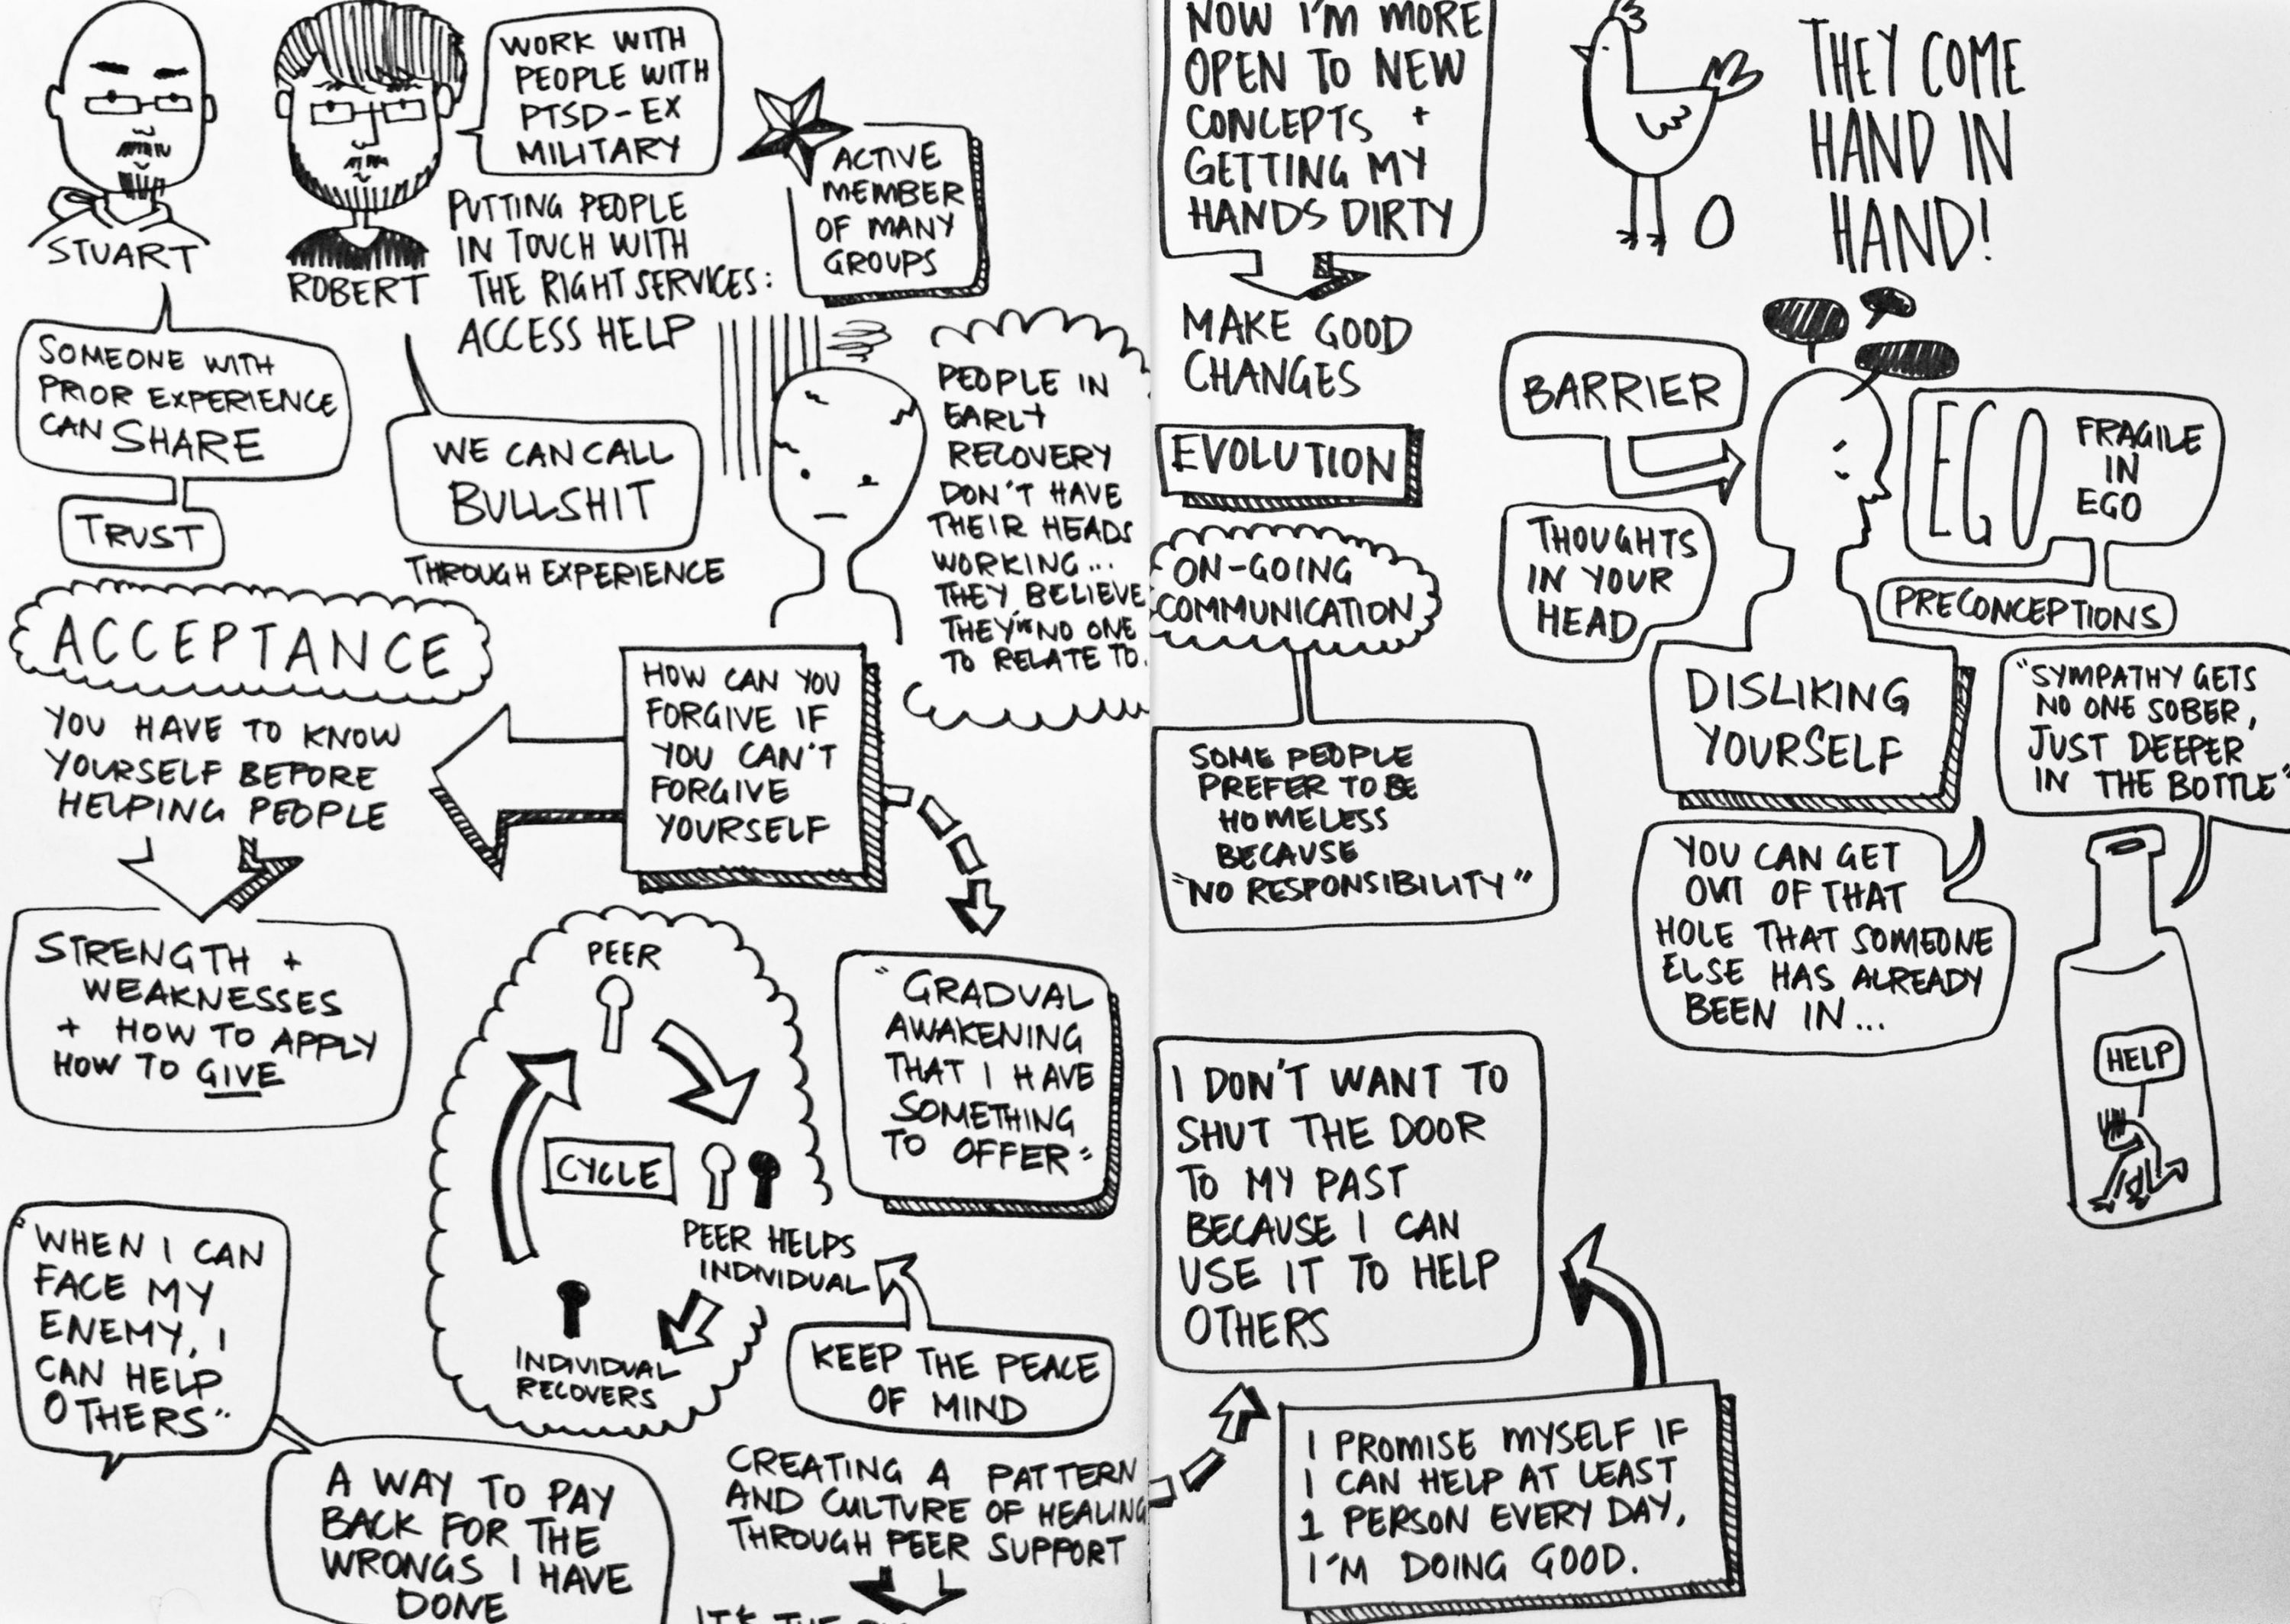 STUART
ROBERT
WORK WITH
PEOPLE WITH
PTSD-EX
MILITARY
PUTTING PEOPLE
IN TOUCH WITH
THE RIGHT SERVICES:
ACCESS HELP
ACTIVE
MEMBER
OF MANY
GROUPS
SOMEONE WITH
PRIOR EXPERIENCE
CAN SHARE
TRUST
WE CAN CALL
BULLSHIT
THROUGH EXPERIENCE
PEOPLE IN
EARLY
RECOVERY
DON'T HAVE
THEIR HEADS
WORKING...
THEY BELIEVE
THEY'VE NO ONE
TO RELATE TO.
ACCEPTANCE
YOU HAVE TO KNOW
YOURSELF BEFORE
HELPING PEOPLE
HOW CAN YOU
FORGIVE IF
YOU CAN'T
FORGIVE
YOURSELF
STRENGTH +
WEAKNESSES
+ HOW TO APPLY
HOW TO GIVE
PEER
CYCLE
PEER HELPS
INDIVIDUAL
INDIVIDUAL
RECOVERS
"GRADUAL
AWAKENING
THAT I HAVE
SOMETHING
TO OFFER"
KEEP THE PEACE
OF MIND
"WHEN I CAN
FACE MY
ENEMY, I
CAN HELP
OTHERS"
A WAY TO PAY
BACK FOR THE
WRONGS I HAVE
DONE
CREATING A PATTERN
AND CULTURE OF HEALING
THROUGH PEER SUPPORT
IT'S THE
NOW I'M MORE
OPEN TO NEW
CONCEPTS +
GETTING MY
HANDS DIRTY
MAKE GOOD
CHANGES
EVOLUTION
ON-GOING
COMMUNICATION
SOME PEOPLE
PREFER TO BE
HOMELESS
BECAUSE
"NO RESPONSIBILITY"
THEY COME
HAND IN
HAND!
BARRIER
THOUGHTS
IN YOUR
HEAD
EGO
FRAGILE
IN
EGO
PRECONCEPTIONS
DISLIKING
YOURSELF
"SYMPATHY GETS
NO ONE SOBER,
JUST DEEPER
IN THE BOTTLE"
YOU CAN GET
OUT OF THAT
HOLE THAT SOMEONE
ELSE HAS ALREADY
BEEN IN...
HELP
I DON'T WANT TO
SHUT THE DOOR
TO MY PAST
BECAUSE I CAN
USE IT TO HELP
OTHERS
I PROMISE MYSELF IF
I CAN HELP AT LEAST
1 PERSON EVERY DAY,
I'M DOING GOOD.